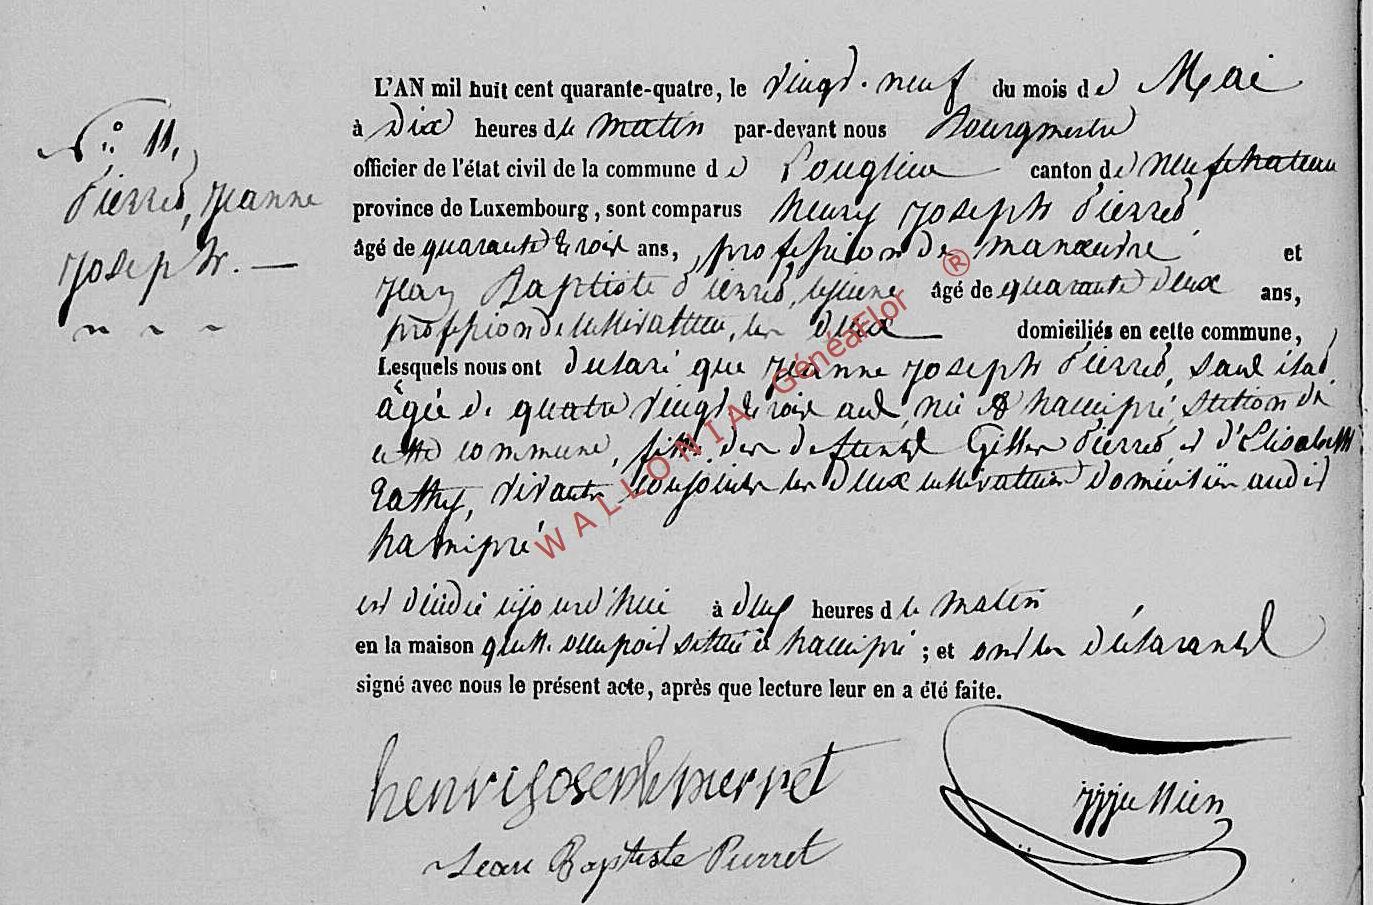 N.° 11.
Pierret, Jeanne
Joseph. —
L'AN mil huit cent quarante-quatre, le vingt-neuf du mois de Mai
à Dix heures du matin par-devant nous Bourgmestre
officier de l'état civil de la commune de Longlier canton de neufchateau
province de Luxembourg, sont comparus henry Joseph Pierret
âgé de quarante trois ans, profession de manœuvre et
Jean Baptiste Pierret, âgé de quarante deux ans,
profession de cultivateur, les deux domiciliés en cette commune,
Lesquels nous ont déclaré que Jeanne Joseph Pierret, sans état,
âgée de quatre vingt trois ans, née à hamipré, section de
cette commune, fille des défunts Gilles Pierret et d'Elisabeth
vivants conjoints les deux cultivateurs domiciliés audit
hamipré
est décédée aujourd'hui à deux heures du matin
en la maison qu'elle occupoit située à hamipré ; et ont les déclarants
signé avec nous le présent acte, après que lecture leur en a été faite.
henri joseph pierret
Jean Baptiste Pierret
WALLONIA GénéaFlor ®